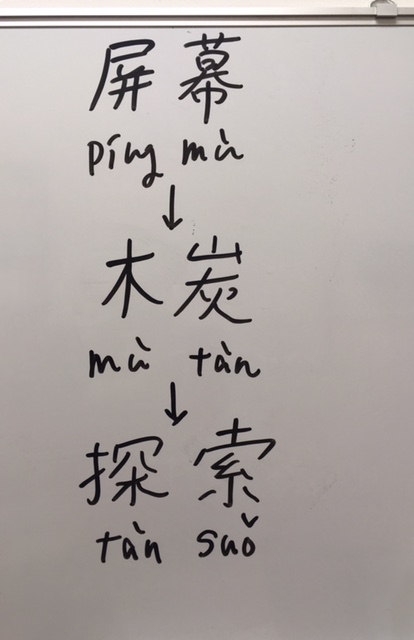 屏幕
píng mù
↓
木炭
mù tàn
↓
探索
tàn suǒ